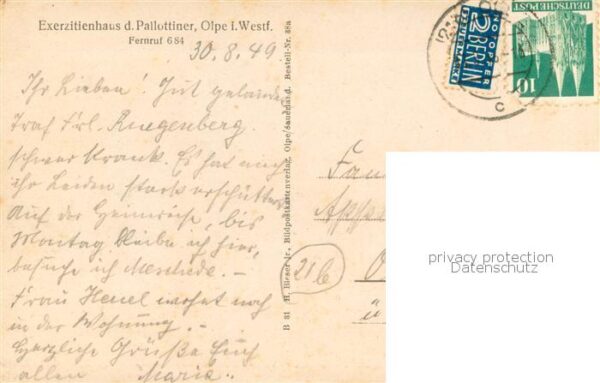 Exerzitienhaus d. Pallottiner, Olpe i. Westf.
Fernruf 684
30.8.49
Ihr Lieben! Gut gelandet
Traf Frl. Ruegenberg
schwer krank. Es hat mich
ihr Leiden stark erschüttert
Auf der Heimreise, bis
Montag bleibe ich hier,
besuche ich Meschede. –
Frau Heuel wohnt noch
in der Wohnung. –
Herzliche Grüße Euch
allen Maria.
B 81 H. Rieser Jr., Bildpostkartenverlag, Olpe/Sauerland. Bestell-Nr. 88a
NOTOPFER
2 BERLIN
STEUERMARKE
DEUTSCHE POST
10
c
Fam
21b
O
ü
privacy protection
Datenschutz